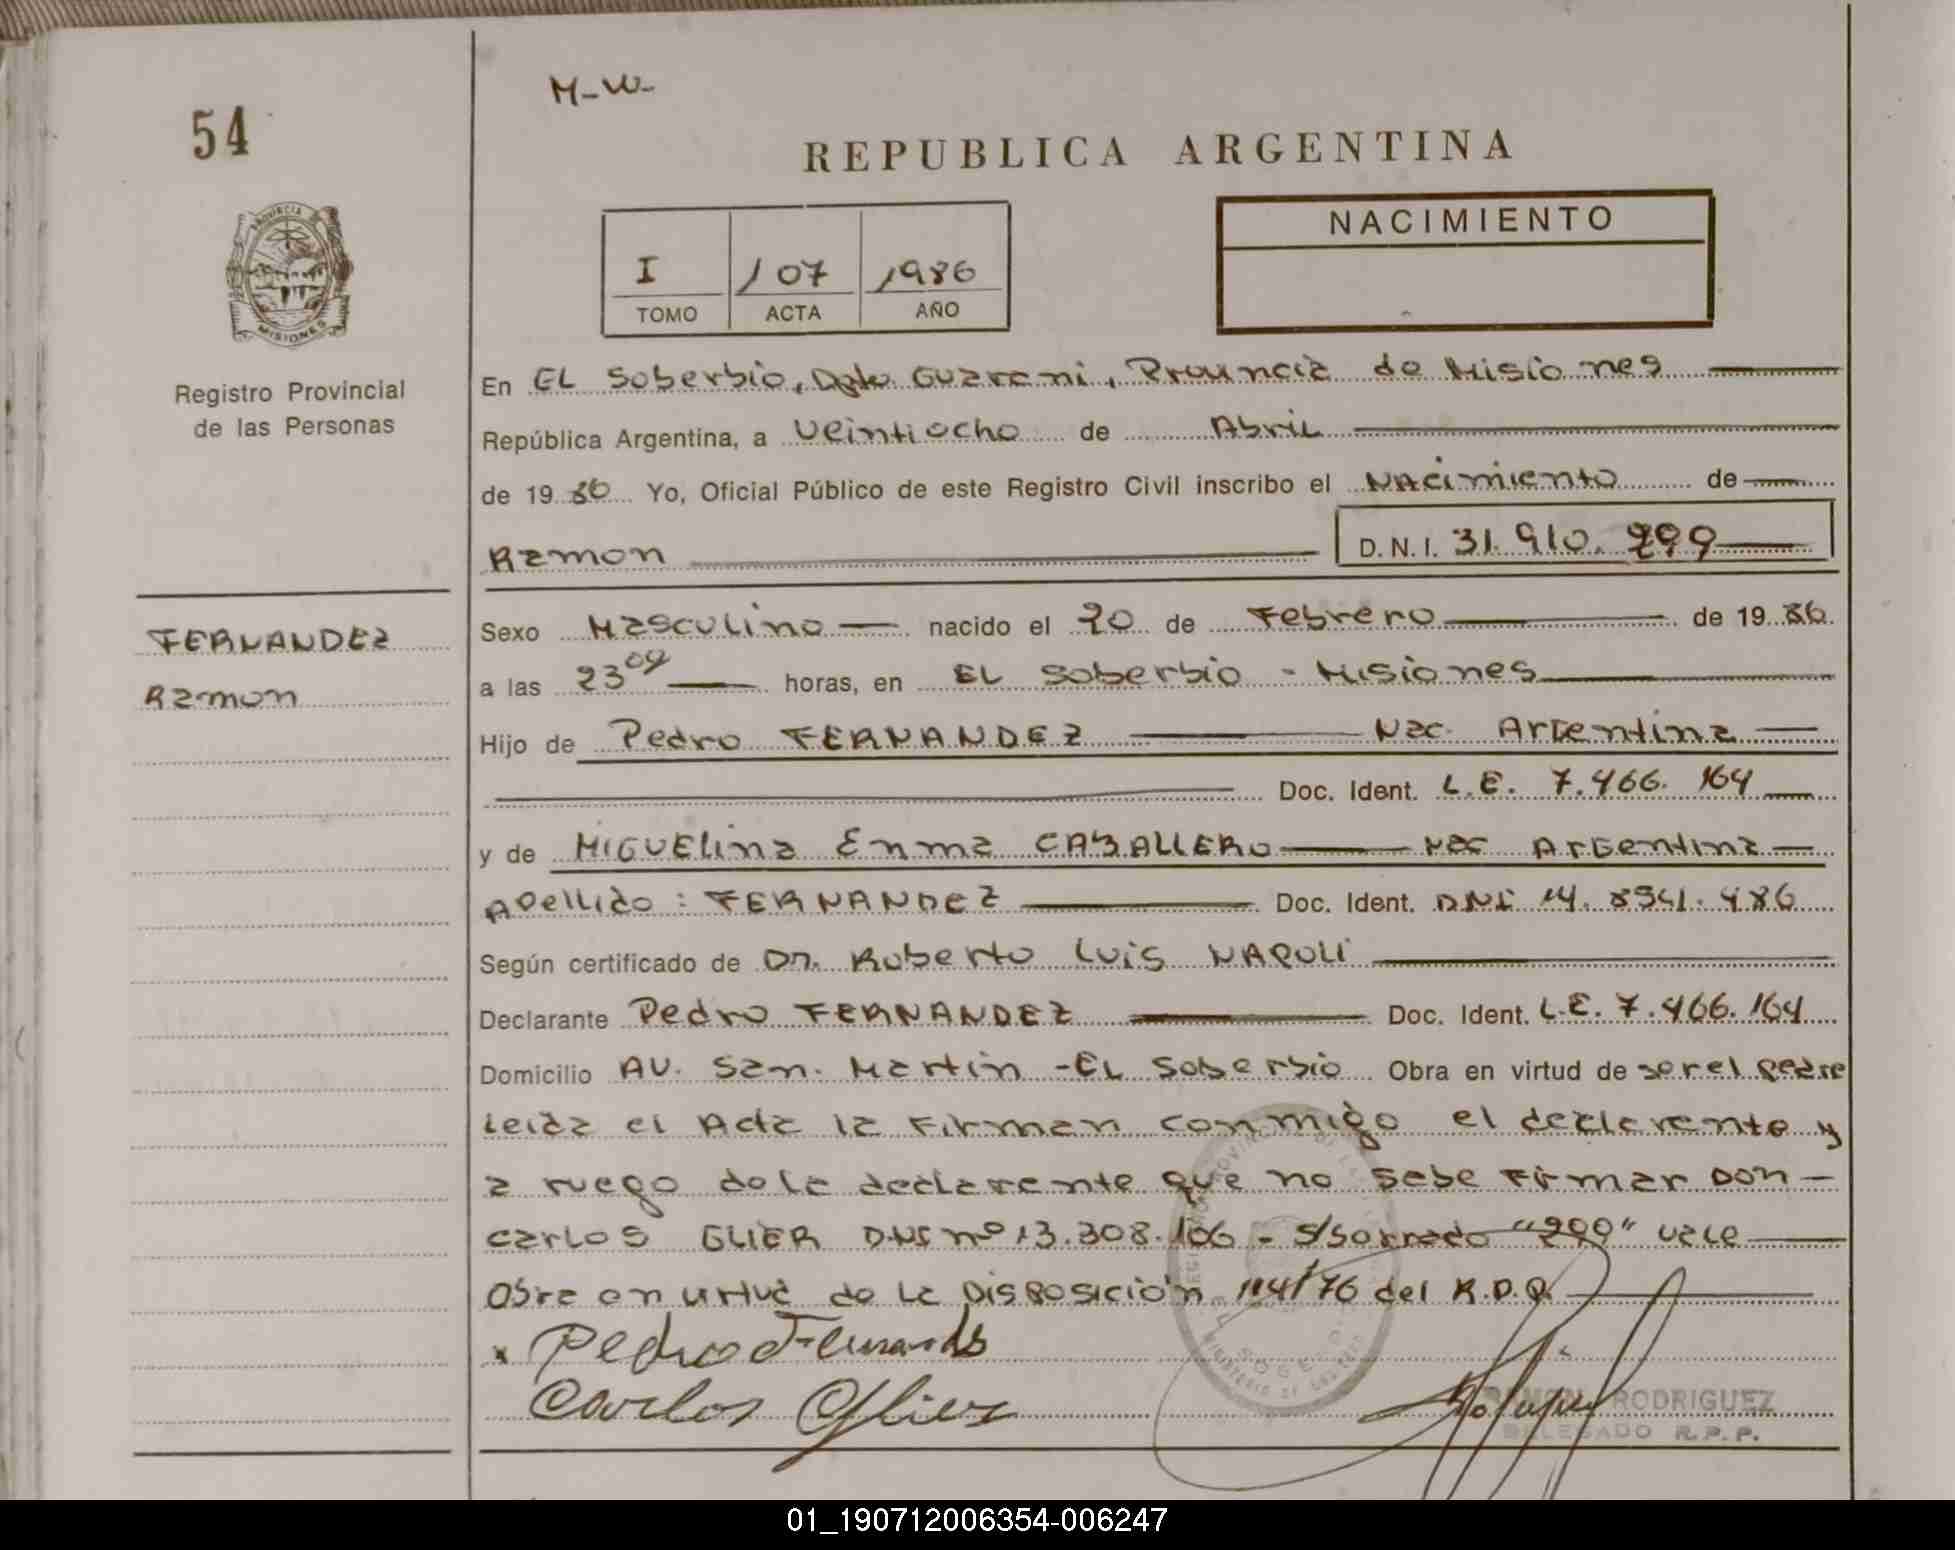 54
M-W-
REPUBLICA ARGENTINA
PROVINCIA
MISIONES
Registro Provincial
de las Personas
I 107 1986
TOMO ACTA AÑO
NACIMIENTO
En EL Soberbio, Dpto Guarani, Provincia de Misiones
República Argentina, a veintiocho de Abril
de 19 86 Yo, Oficial Público de este Registro Civil inscribo el NAcimiento de
Ramon D.N.I. 31.910.299
FERNANDEZ
Ramon
Sexo Masculino nacido el 20 de Febrero de 19 86
a las 23 09 horas, en EL Soberbio - Misiones
Hijo de Pedro FERNANDEZ Nac. Argentina
Doc. Ident. L.E. 7.466.164
y de MIGUElina Emma CABALLERO Nac Argentina
Apellido: FERNANDEZ Doc. Ident. DNI 14.
Según certificado de Dr. Roberto Luis NAPOLI
Declarante Pedro FERNANDEZ Doc. Ident. L.E. 7.466.164
Domicilio AV. San. Martin - EL Soberbio Obra en virtud de ser el padre
Leida el Acta la Firman conmigo el declarante y
a ruego de la declarante que no sabe Firmar Don
Carlos GLIER DNI nº 13.308.106 - S/Borrado "299" vale
Obra en virtud de la Disposición 114/76 del R.P.P.
x Pedro Fernandes
Carlos Glier
RAMON RODRIGUEZ
DELEGADO R.P.P.
01_190712006354-006247